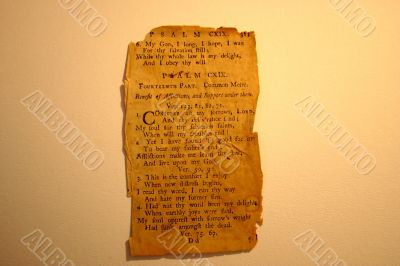 PSALM CXIX.
6. My GOD, I long, I hope, I wait
For thy salvation still;
While thy whole law is my delight,
And I obey thy will.
PSALM CXIX.
FOURTEENTH PART. Common Metre.
Benefit of Afflictions, and Support under them.
Ver. 153, 81, 82, 71.
1. CONSIDER all my sorrows, LORD,
And thy deliv'rance send;
My soul for thy salvation faints,
When will my troubles end?
2. Yet I have found 'tis good for me
To bear my father's rod;
Afflictions make me learn thy law,
And live upon my GOD.
Ver. 50, 92.
3. This is the comfort I enjoy
When new distress begins,
I read thy word, I run thy way
And hate my former sins.
4. Had not thy word been my delight
When earthly joys were fled,
My soul opprest with sorrow's weight
Had sunk amongst the dead.
Ver. 75. 67.
Dd
ALBUMO
ALBUMO
ALBUMO
ALBUMO
ALBUMO